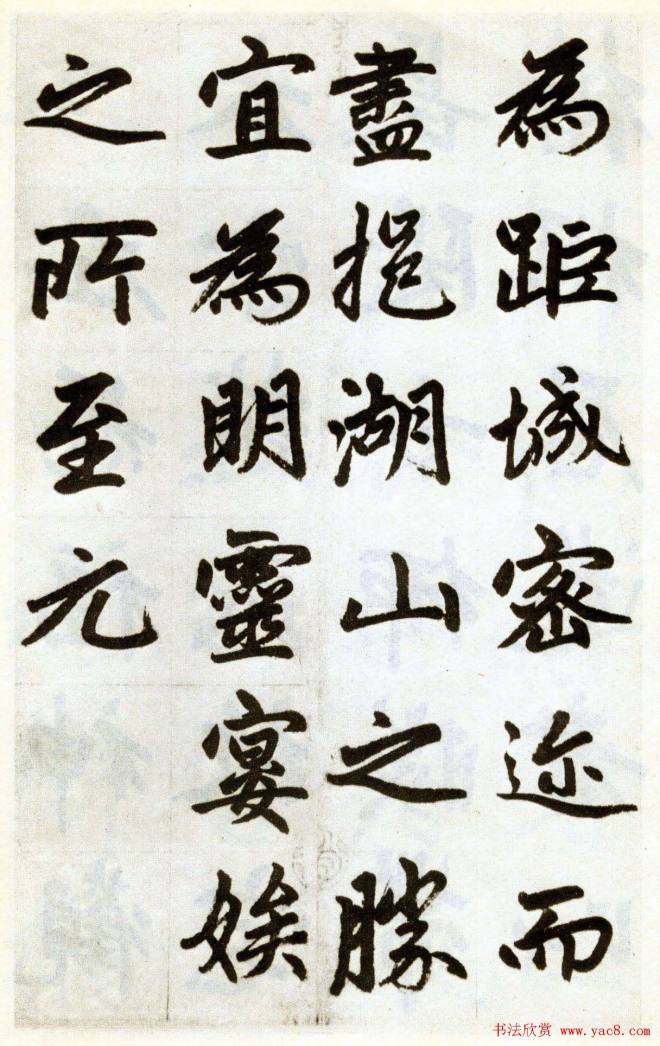 為距城密迩而
盡挹湖山之勝
宜為明靈宴娭
之所至元
书法欣赏 www.yac8.com